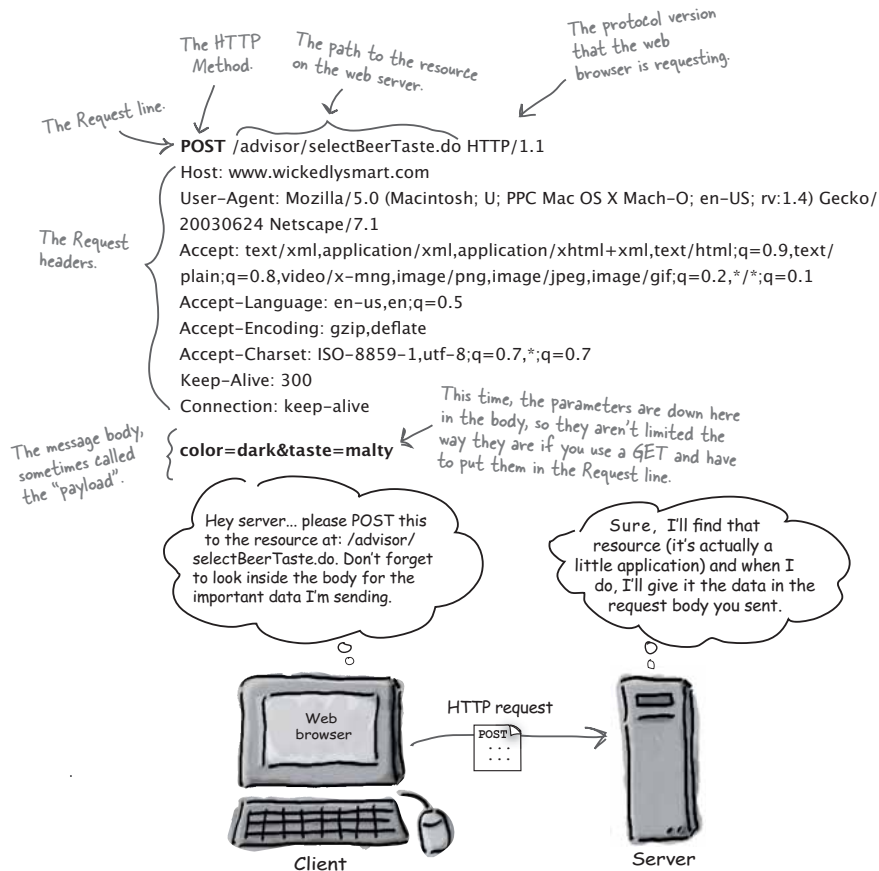 The HTTP
Method.
The path to the resource
on the web server.
The protocol version
that the web
browser is requesting.
The Request line.
POST /advisor/selectBeerTaste.do HTTP/1.1
Host: www.wickedlysmart.com
User-Agent: Mozilla/5.0 (Macintosh; U; PPC Mac OS X Mach-O; en-US; rv:1.4) Gecko/
20030624 Netscape/7.1
Accept: text/xml,application/xml,application/xhtml+xml,text/html;q=0.9,text/
plain;q=0.8,video/x-mng,image/png,image/jpeg,image/gif;q=0.2,*/*;q=0.1
Accept-Language: en-us,en;q=0.5
Accept-Encoding: gzip,deflate
Accept-Charset: ISO-8859-1,utf-8;q=0.7,*;q=0.7
Keep-Alive: 300
Connection: keep-alive
The Request
headers.
color=dark&taste=malty
The message body,
sometimes called
the "payload".
This time, the parameters are down here
in the body, so they aren't limited the
way they are if you use a GET and have
to put them in the Request line.
Hey server... please POST this
to the resource at: /advisor/
selectBeerTaste.do. Don't forget
to look inside the body for the
important data I'm sending.
Sure, I'll find that
resource (it's actually a
little application) and when I
do, I'll give it the data in the
request body you sent.
Web
browser
HTTP request
POST
...
...
Client
Server